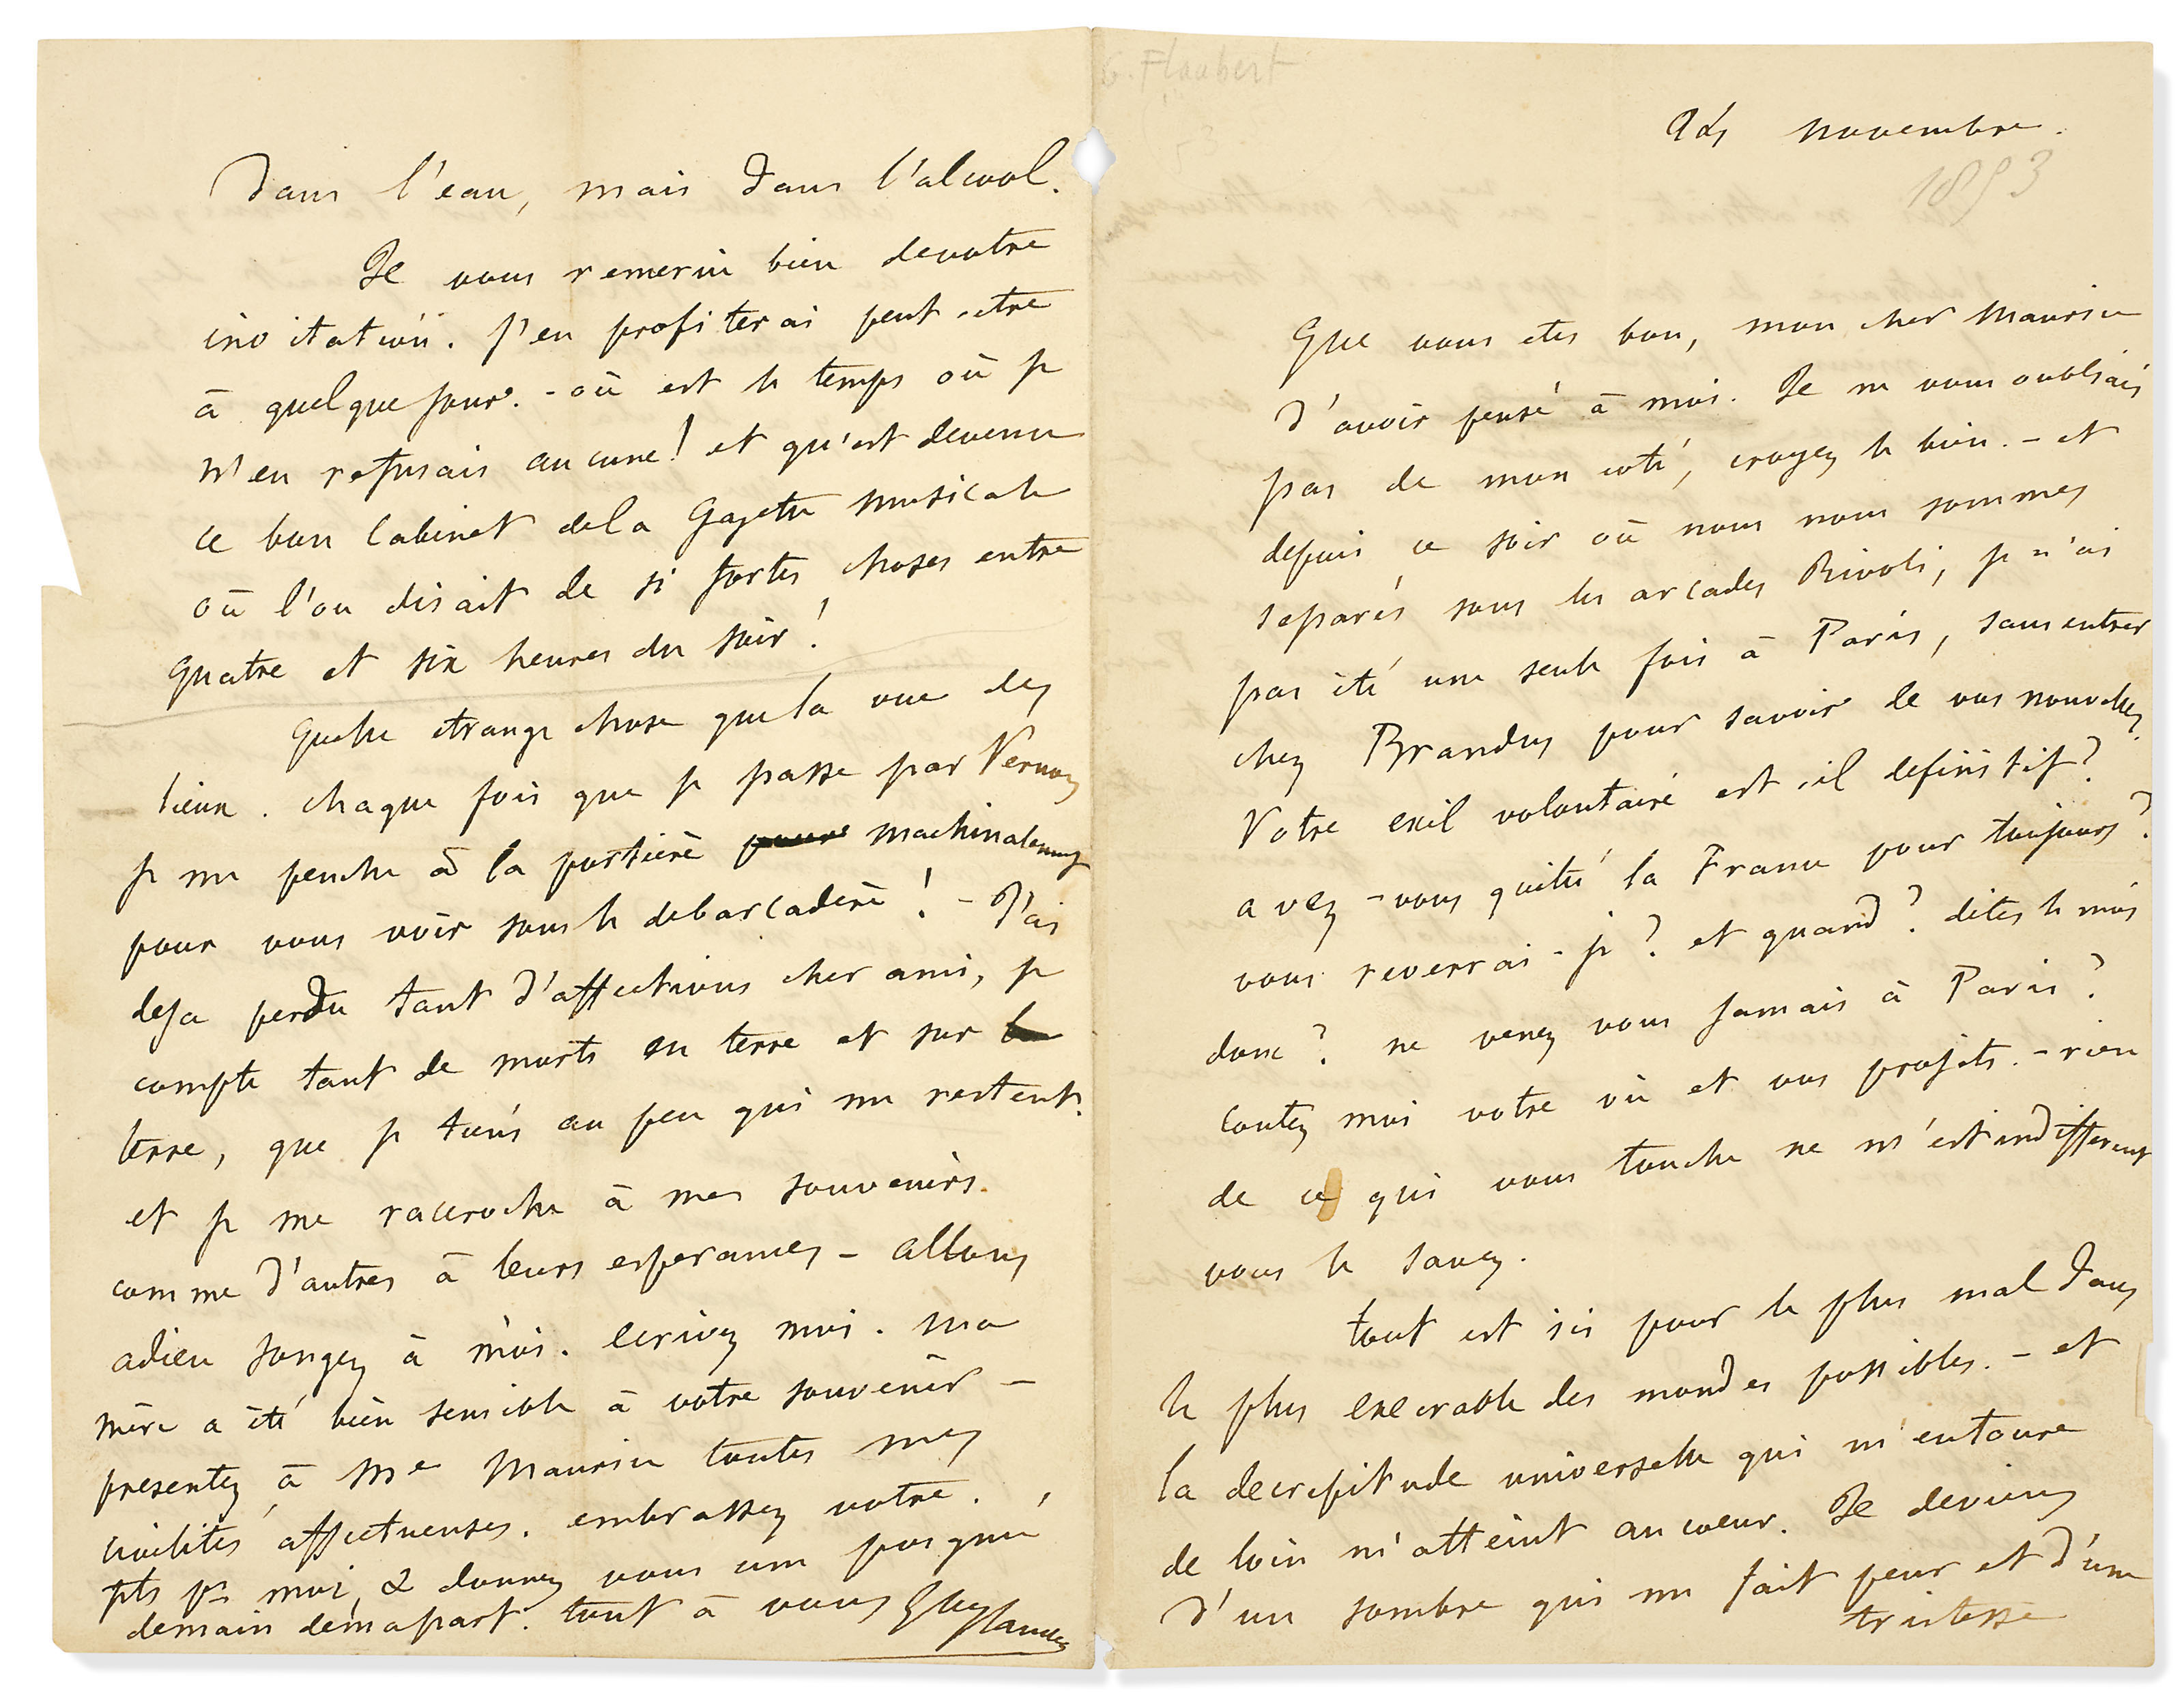 G. Flaubert
novembre.
1853
Que vous etes bon, mon cher Maurice
d'avoir pensé à moi. Je ne vous oubliais
pas de mon coté, croyez le bien. - et
depuis ce soir où nous nous sommes
separés sous les arcades Rivoli, je n'ai
pas été une seule fois à Paris, sans entrer
chez Brandus pour savoir de vos nouvelles.
Votre exil volontaire est-il definitif?
avez-vous quitté la France pour toujours?
vous reverrai-je? et quand? dites le moi
donc? ne venez vous jamais à Paris?
contez moi votre vie et vos projets. - rien
de ce qui vous touche ne m'est indifferent
vous le savez.
tout est ici pour le plus mal dans
le plus execrable des mondes possibles. - et
la decrepitude universelle qui m'entoure
de loin m'atteint au coeur. Je deviens
d'un sombre qui me fait peur et d'une
tristesse
dans l'eau, mais dans l'alcool.
Je vous remercie bien de votre
invitation. J'en profiterai peut-etre
à quelque jour. - où est le temps où je
n'en refusais aucune! et qu'est devenu
ce bon Cabinet de la Gazette musicale
où l'on disait de si fortes choses entre
quatre et six heures du soir!
Quelle etrange chose que la vue des
lieux. chaque fois que je passe par Vernon
je me penche à la portière machinalement
pour vous voir sous le debarcadère! - J'ai
deja perdu tant d'affections cher ami, je
compte tant de morts en terre et sur
terre, que je tiens au peu qui me restent.
et je me raccroche à mes souvenirs
comme d'autres à leurs esperances - allons
adieu songez à moi. ecrivez moi. ma
mère a été bien sensible à votre souvenir -
presentez à Me Maurice toutes mes
civilités affectueuses. embrassez votre
pts pr moi & donnez vous une poignée
demain dema part. tout à vous Gve Flaubert